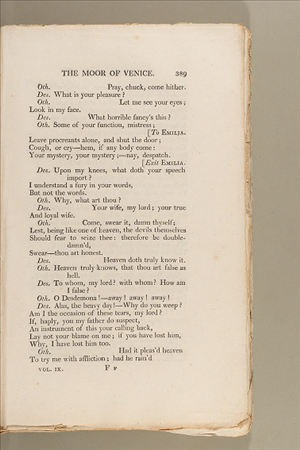 THE MOOR OF VENICE. 389
Oth. Pray, chuck, come hither.
Des. What is your pleasure?
Oth. Let me see your eyes;
Look in my face.
Des. What horrible fancy's this?
Oth. Some of your function, mistress;
[To EMILIA.
Leave procreants alone, and shut the door;
Cough, or cry—hem, if any body come:
Your mystery, your mystery;—nay, despatch.
[Exit EMILIA.
Des. Upon my knees, what doth your speech
import?
I understand a fury in your words,
But not the words.
Oth. Why, what art thou?
Des. Your wife, my lord; your true
And loyal wife.
Oth. Come, swear it, damn thyself;
Lest, being like one of heaven, the devils themselves
Should fear to seize thee: therefore be double-
damn'd,
Swear—thou art honest.
Des. Heaven doth truly know it.
Oth. Heaven truly knows, that thou art false as
hell.
Des. To whom, my lord? with whom? How am
I false?
Oth. O Desdemona!—away! away! away!
Des. Alas, the heavy day!—Why do you weep?
Am I the occasion of these tears, my lord?
If, haply, you my father do suspect,
An instrument of this your calling back,
Lay not your blame on me; if you have lost him,
Why, I have lost him too.
Oth. Had it pleas'd heaven
To try me with affliction; had he rain'd
VOL. IX. F F